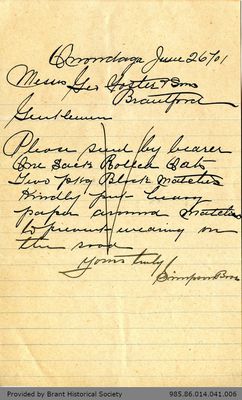 Onondaga June 26/01
Messrs Geo Foster & Sons
Brantford
Gentlemen
Please send by bearer
One Sack Rolled Oats
Two pkg Block Matches
Kindly put heavy
paper around Matches
to prevent wearing on
the road
Yours truly
Simpson Bros
Provided by Brant Historical Society
985.86.014.041.006